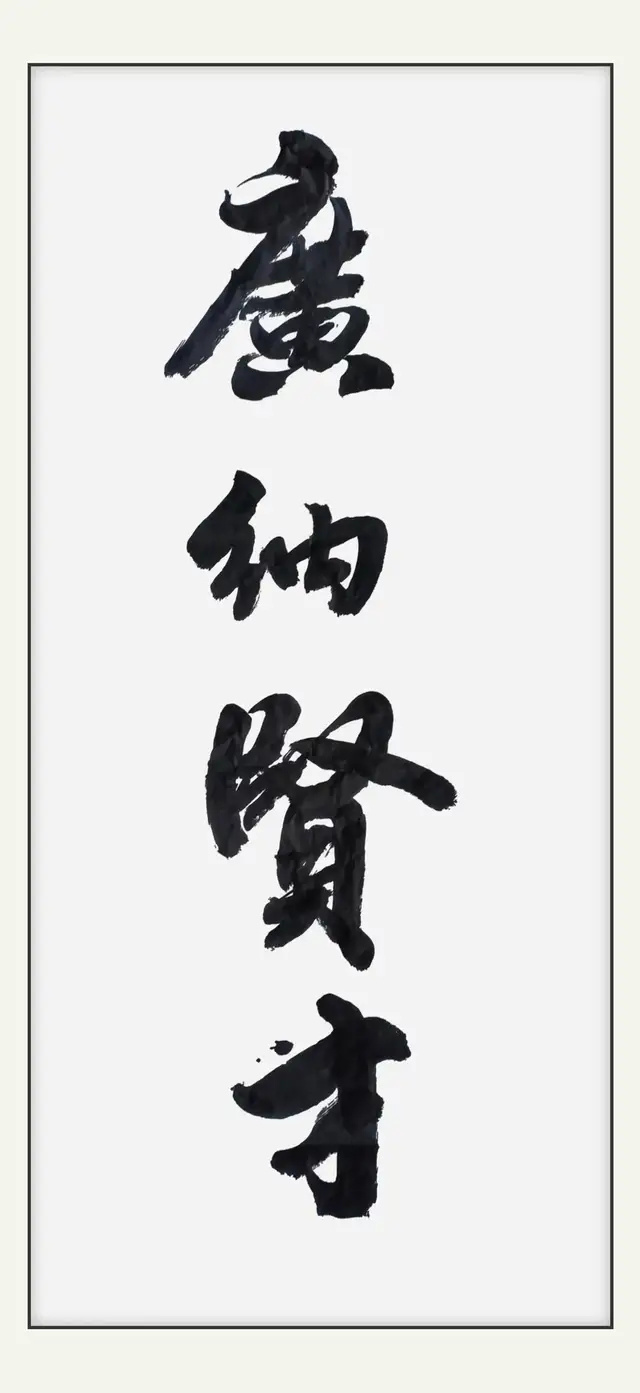 廣納賢才